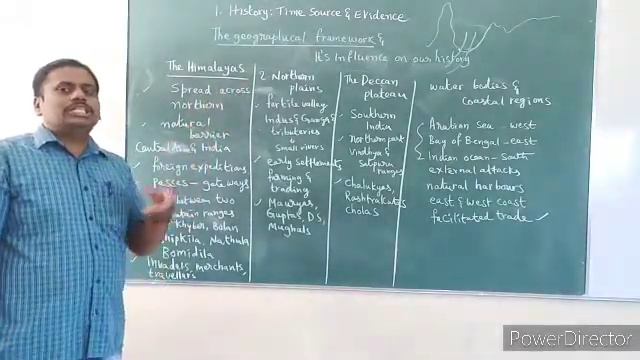 1. History: Time Source & Evidence
The geographical framework &
It's Influence on our history
The Himalayas
Spread across
northern
natural
barrier
Central Asia & India
foreign expeditions
Passes — gateways
between two
ranges
Khyber, Bolan
Shipkila, Nathula
Bomidila
Invaders, merchants,
travellers
2 Northern
plains
fertile valley
Indus & Ganga
tributeries
small rivers
early settlements
farming &
trading
Mauryas,
Guptas, D.S,
Mughals
The Deccan
plateau
Southern
India
northern part
Vindhya &
Satpura
ranges
Chalukyas,
Rashtrakutas
Cholas
water bodies &
Coastal regions
Arabian Sea - west
Bay of Bengal - east
Indian ocean - South
external attacks
natural harbours
east & west coast
facilitated trade
PowerDirector